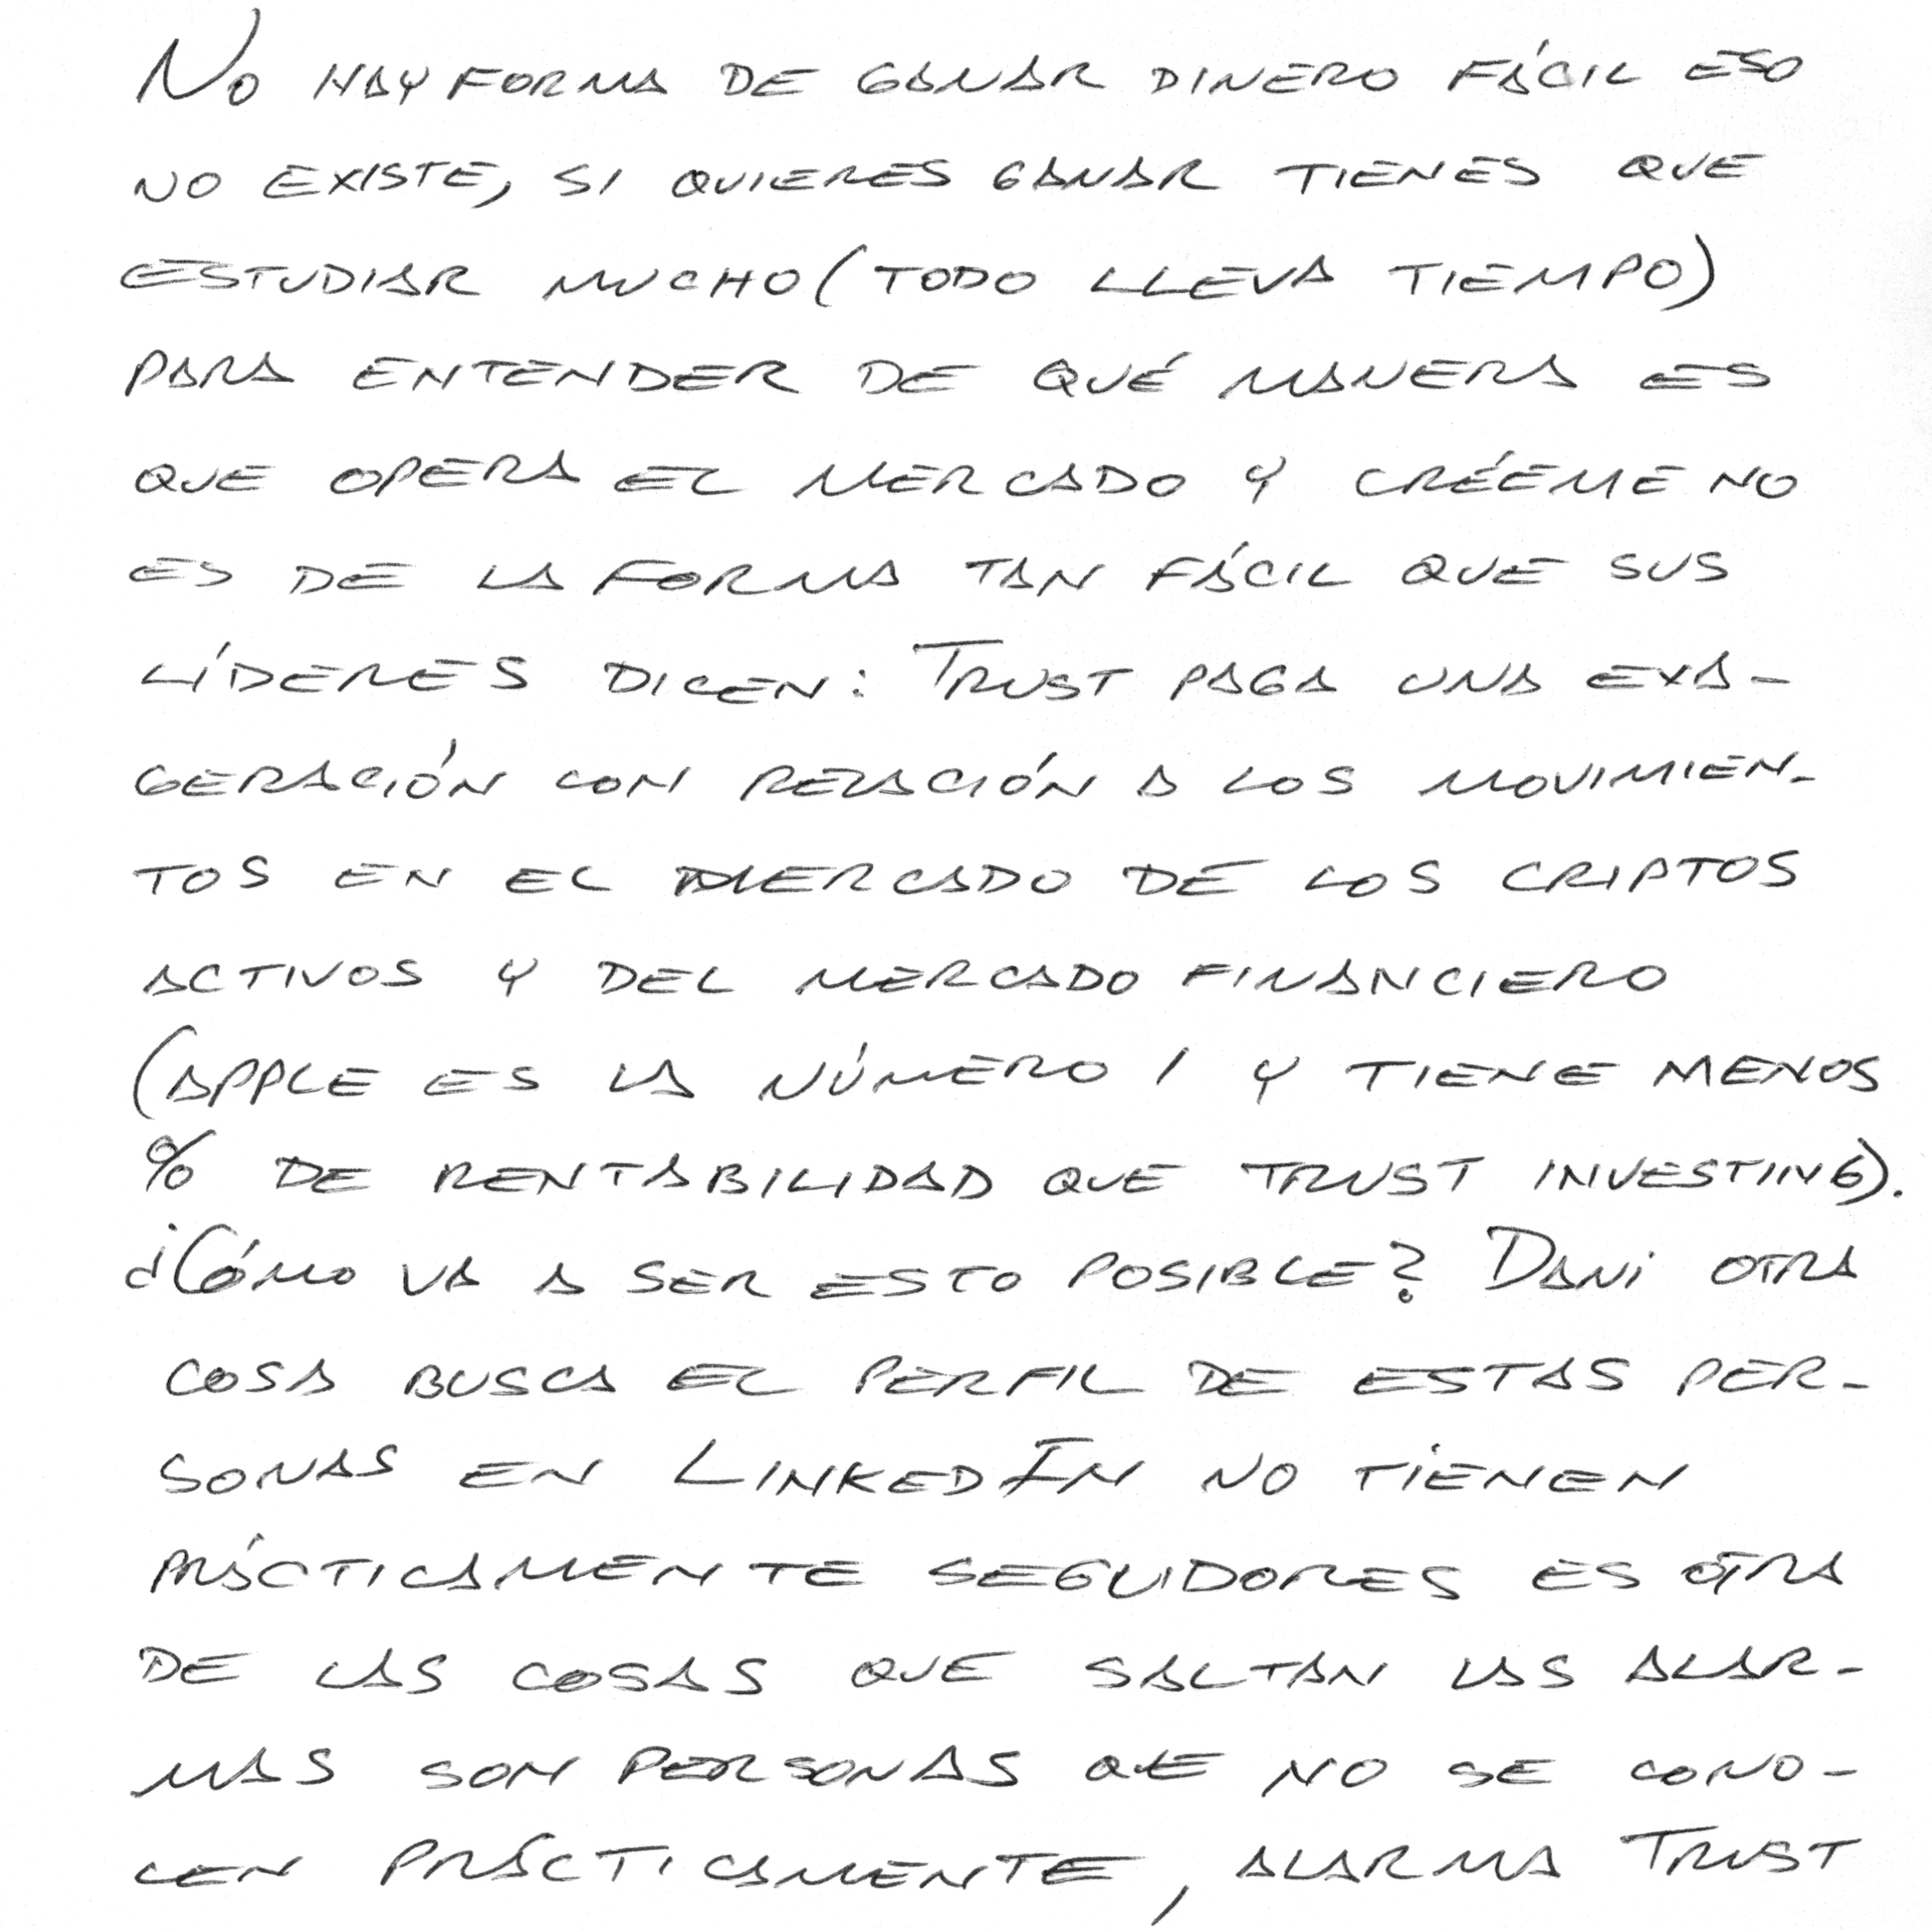 No HAY FORMA DE GANAR DINERO FÁCIL ESO
NO EXISTE, SI QUIERES GANAR TIENES QUE
ESTUDIAR MUCHO (TODO LLEVA TIEMPO)
PARA ENTENDER DE QUÉ MANERA ES
QUE OPERA EL MERCADO Y CRÉEME NO
ES DE LA FORMA TAN FÁCIL QUE SUS
LÍDERES DICEN: TRUST PAGA UNA EXA-
GERACIÓN CON RELACIÓN A LOS MOVIMIEN-
TOS EN EL MERCADO DE LOS CRIPTOS
ACTIVOS Y DEL MERCADO FINANCIERO
(APPLE ES LA NÚMERO 1 Y TIENE MENOS
% DE RENTABILIDAD QUE TRUST INVESTING).
¿CÓMO VA A SER ESTO POSIBLE? DANI OTRA
COSA BUSCA EL PERFIL DE ESTAS PER-
SONAS EN LINKEDIN NO TIENEN
PRÁCTICAMENTE SEGUIDORES ES OTRA
DE LAS COSAS QUE SALTAN LAS ALAR-
MAS SON PERSONAS QUE NO SE CONO-
CEN PRÁCTICAMENTE, ALARMA TRUST